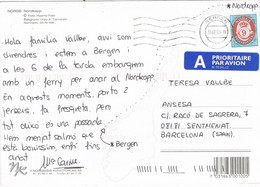 NORGE. Nordkapp
★ Nordkapp
Hola família Vallbé, avui som
divendres i estem a Bergen i
a les 6 de la tarda embarquem
amb un ferry per anar al Nordkapp.
En aquests moments, porto 2
jerseis, fa fresqueta, però
tot això és una passada.
Hem menjat salmó i que
està boníssim, ents fins
aviat
★ Bergen
A PRIORITAIRE
PAR AVION
TERESA VALLBÉ
ANSESA
C/ RACÓ DE SAGRERA, 7
08181 SENTMENAT.
BARCELONA